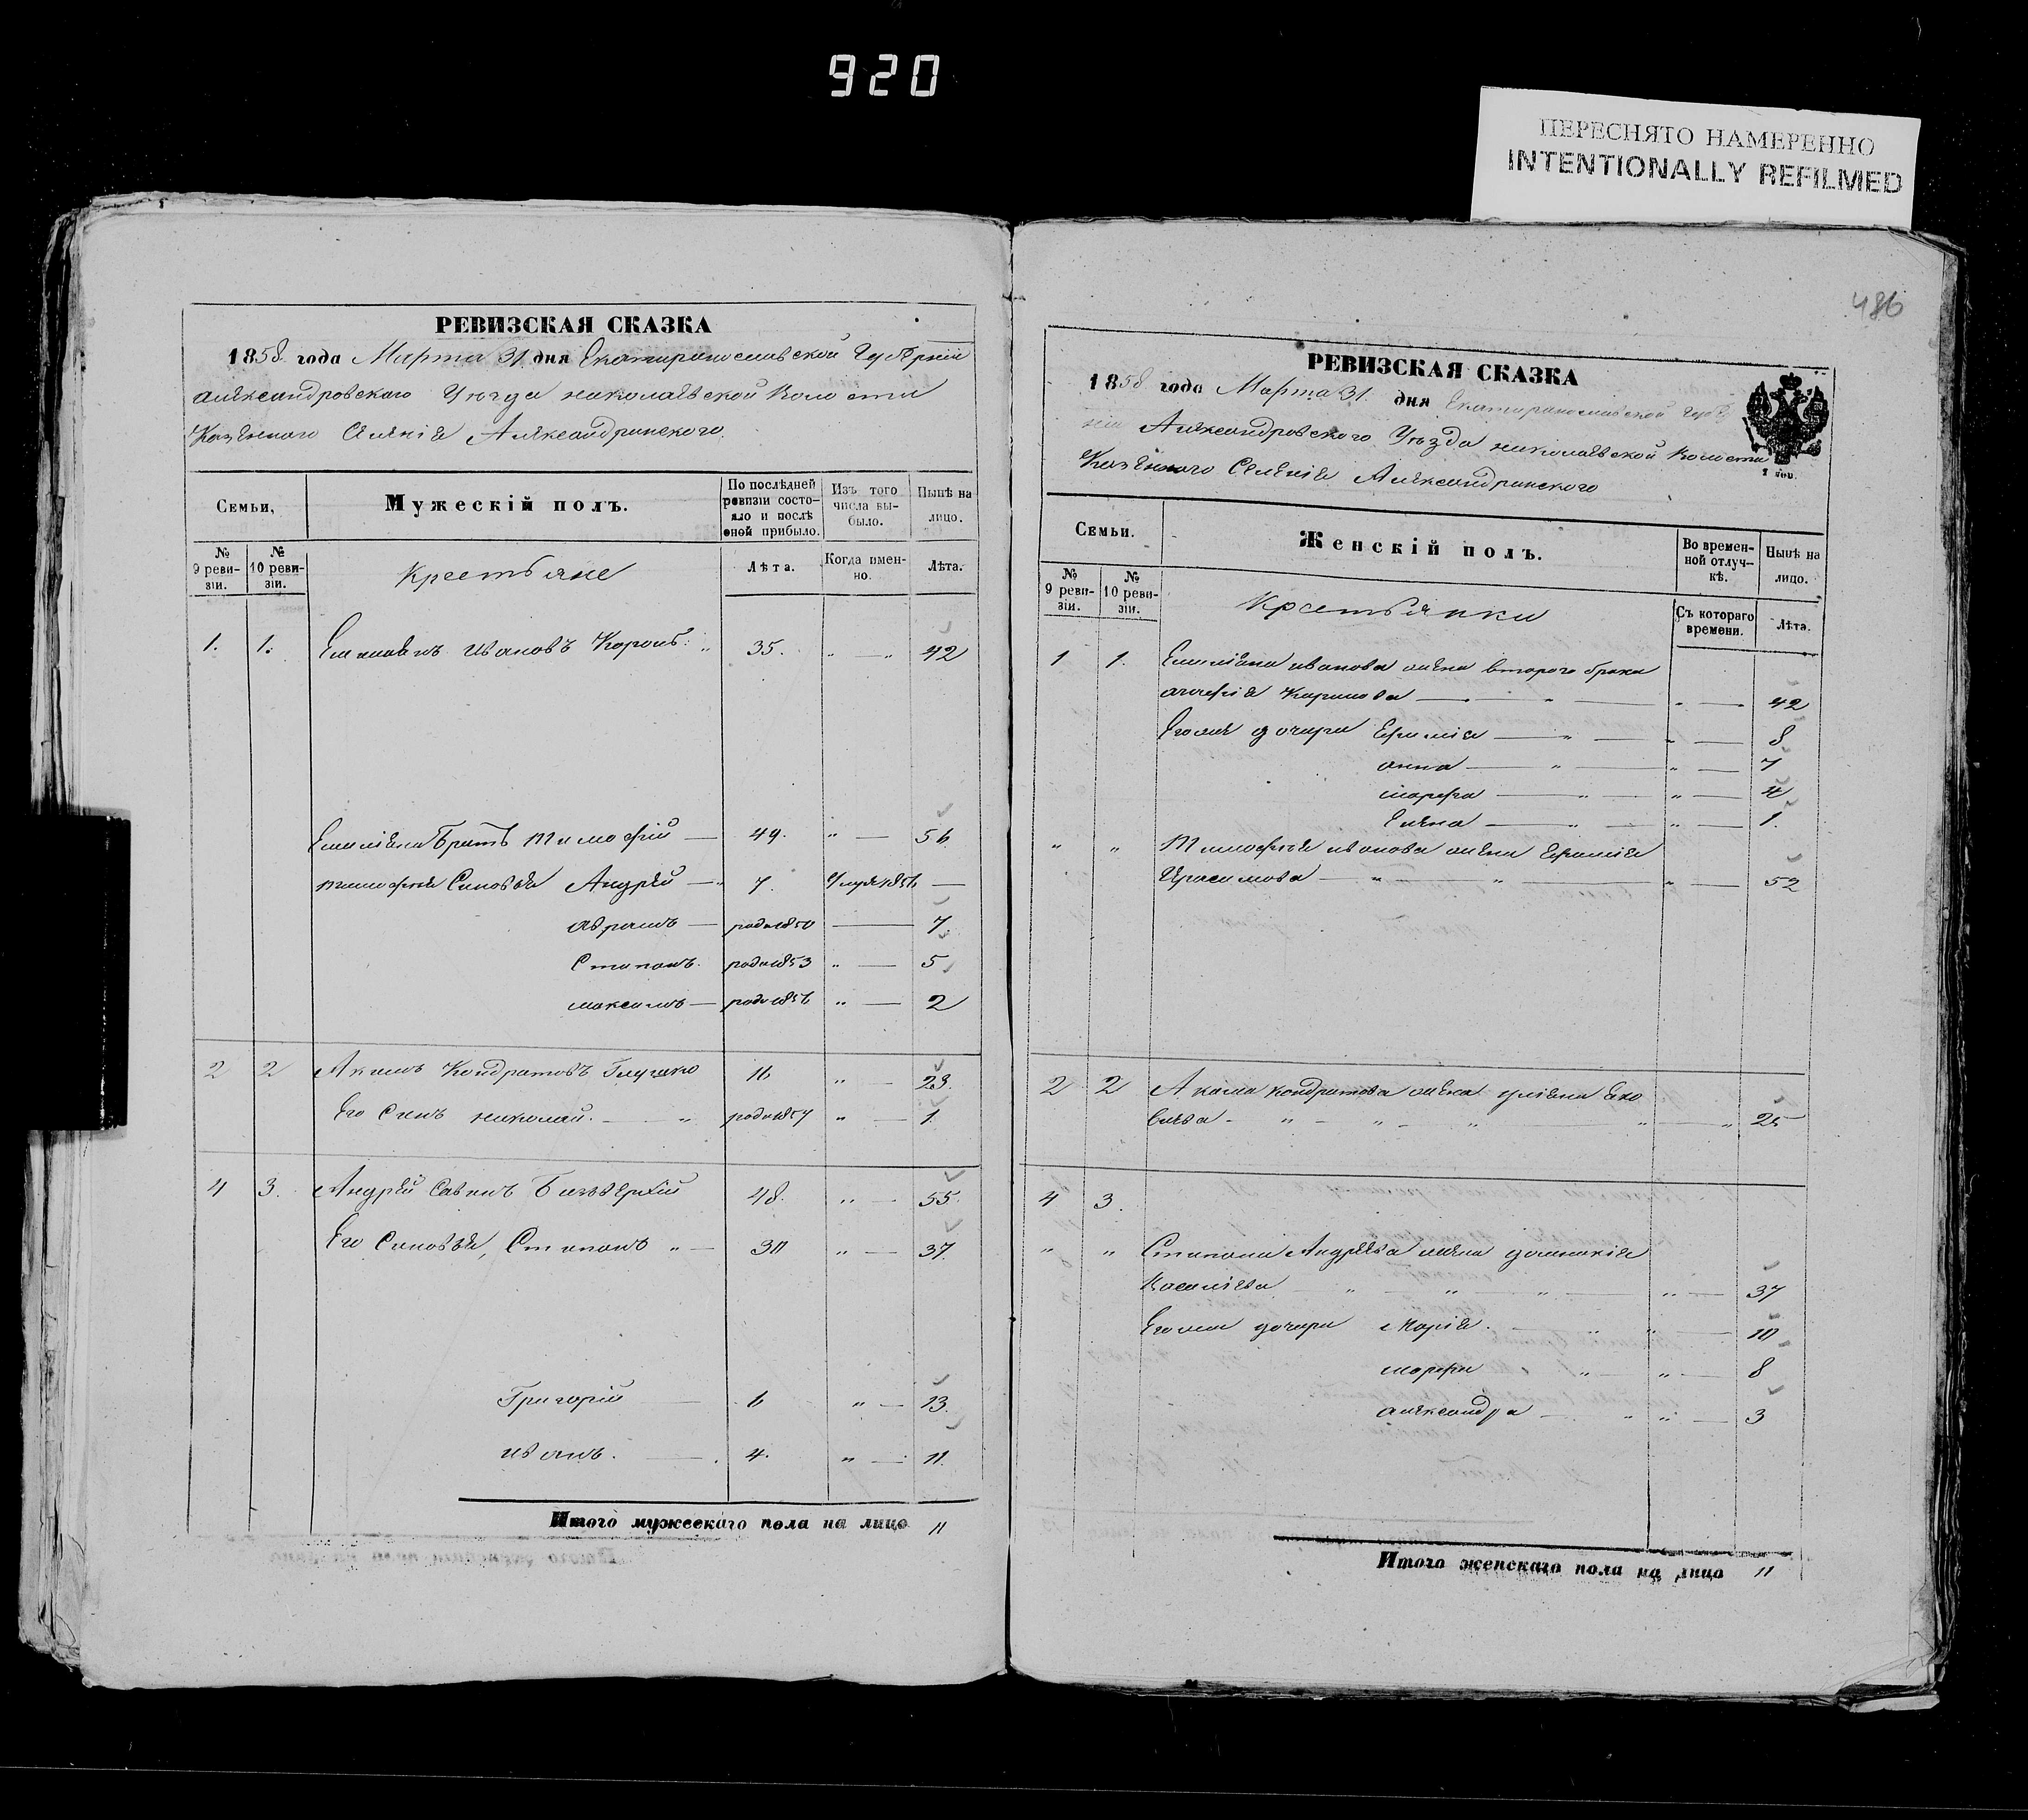 920
ПЕРЕСНЯТО НАМЕРЕННО
INTENTIONALLY REFILMED
486
РЕВИЗСКАЯ СКАЗКА
1858 года Марта 31 дня Екатеринославской Губернии
Александровского Уезда Николаевской Волости
Казенного Селения Александринского.
Семьи,
Мужескій полъ.
По послѣдней ревизіи состояло и послѣ оной прибыло.
Изъ того числа выбыло.
Нынѣ на лицо.
№ 9 ревизіи.
№ 10 ревизіи.
Крестьяне
Лѣта.
Когда именно.
Лѣта.
1. 1. Емельянъ Ивановъ 35. " — " 42
Емельяна Братъ Тимофей — 49. " — 56
Тимофея Сыновья Андрей — " 7. Умре 1856 —
Аврамъ — роди 1850 — 7.
Степанъ. роди 1853 " — 5
Максимъ — роди 1856 " — 2
2 2 Акимъ Кондратовъ Глушко 16 " — 23.
Его Сынъ Николай. — " роди 1857 " — 1.
4 3. Андрей Савинъ 48. " — 55.
Его Сыновья, Степанъ " — 30 " — 37.
Григорій — 6 " — 13.
Иванъ. — . 4. " — 11.
Итого мужескаго пола на лицо 11
РЕВИЗСКАЯ СКАЗКА
1858 года Марта 31. дня Екатеринославской Губер
нии Александровского Уезда Николаевской Волости
Казенного Селения Александринского
Семьи.
Женскій полъ.
Во временной отлучкѣ.
Нынѣ на лицо.
№ 9 ревизіи.
№ 10 ревизіи.
Крестьянки
Съ котораго времени.
Лѣта.
1 1. Емельяна Иванова жена второго брака
— " — " — 42
Его же дочери Ефимия — " — " — 8
Анна — " — " — 7
Марфа — " — " — 4
Елена — " — " — 1.
" " Тимофея Иванова жена Ефимия
Герасимова — " — " — " — 52
2 2 Акима Кондратова жена Улияна Яко
влева - " - " - " — " — " 25
4 3.
" " Степана Андреева жена Домникия
Василиева — " — " — " — " — 37
Его же дочери Мария. — " " — 10
Марфа " " — 8
Александра — " " — 3
Итого женскаго пола на лицо 11